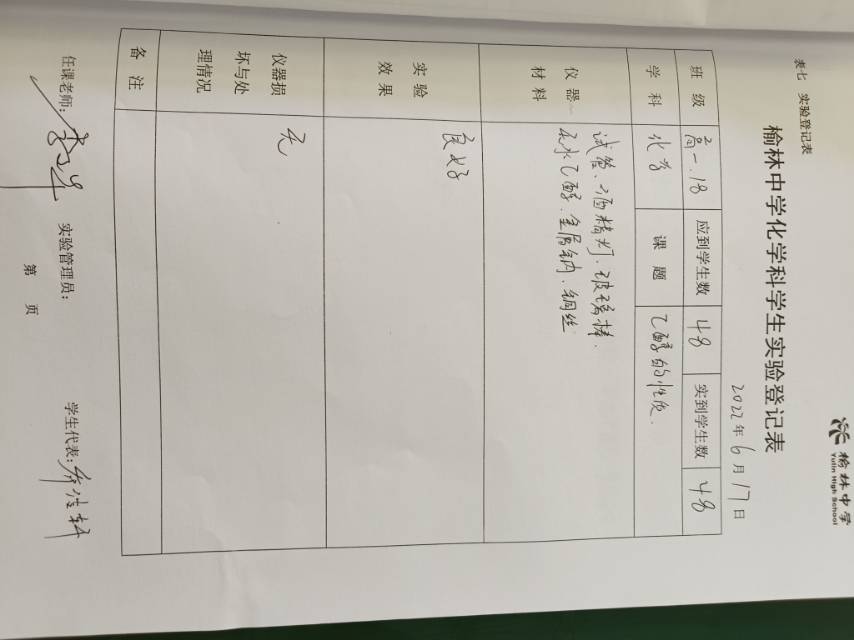 榆林中学
Yulin High School
表七 实验登记表
榆林中学化学科学生实验登记表
2022年6月17日
班级 高一.18 应到学生数 48 实到学生数 48
学科 化学 课题 乙醇的性质.
仪器材料 试管、酒精灯.玻璃棒.
无水乙醇.金属钠.铜丝
实验效果 良好
仪器损坏与处理情况 无
备注
任课老师: 实验管理员: 学生代表:
第 页